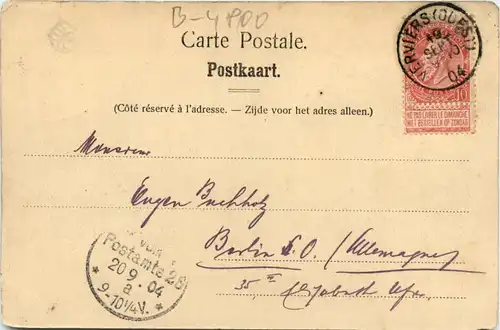 B-4900
Carte Postale.
Postkaart.
(Côté réservé à l'adresse. — Zijde voor het adres alleen.)
VERVIERS (OUEST)
19
SEPT
04
10
NE PAS LIVRER LE DIMANCHE
NIET BESTELLEN OP ZONDAG
Monsieur
Eugen Buchholz
Berlin S.O. (Allemagne)
35 II Elisabeth Ufer
Postamte 26
20 9 04
a
* 9-10¼V. *